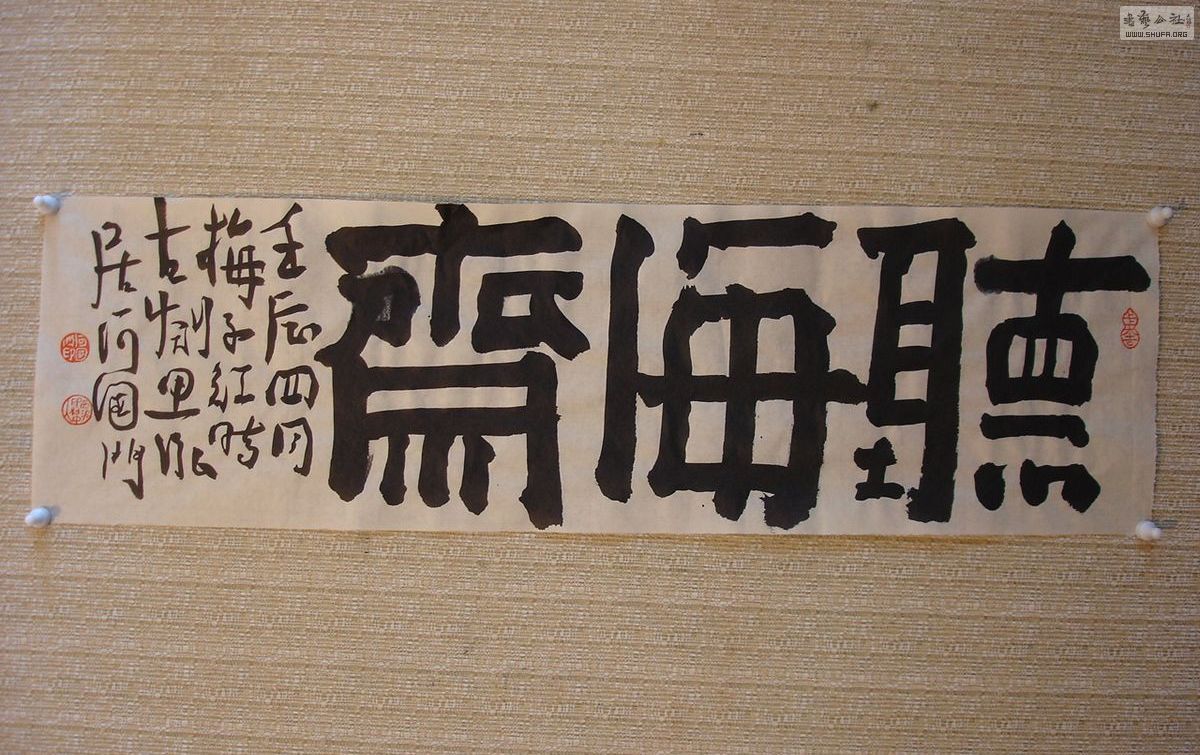 聽海齋
壬辰四月
梅子紅時
古
居何國門
書藝公社
WWW.SHUFA.ORG